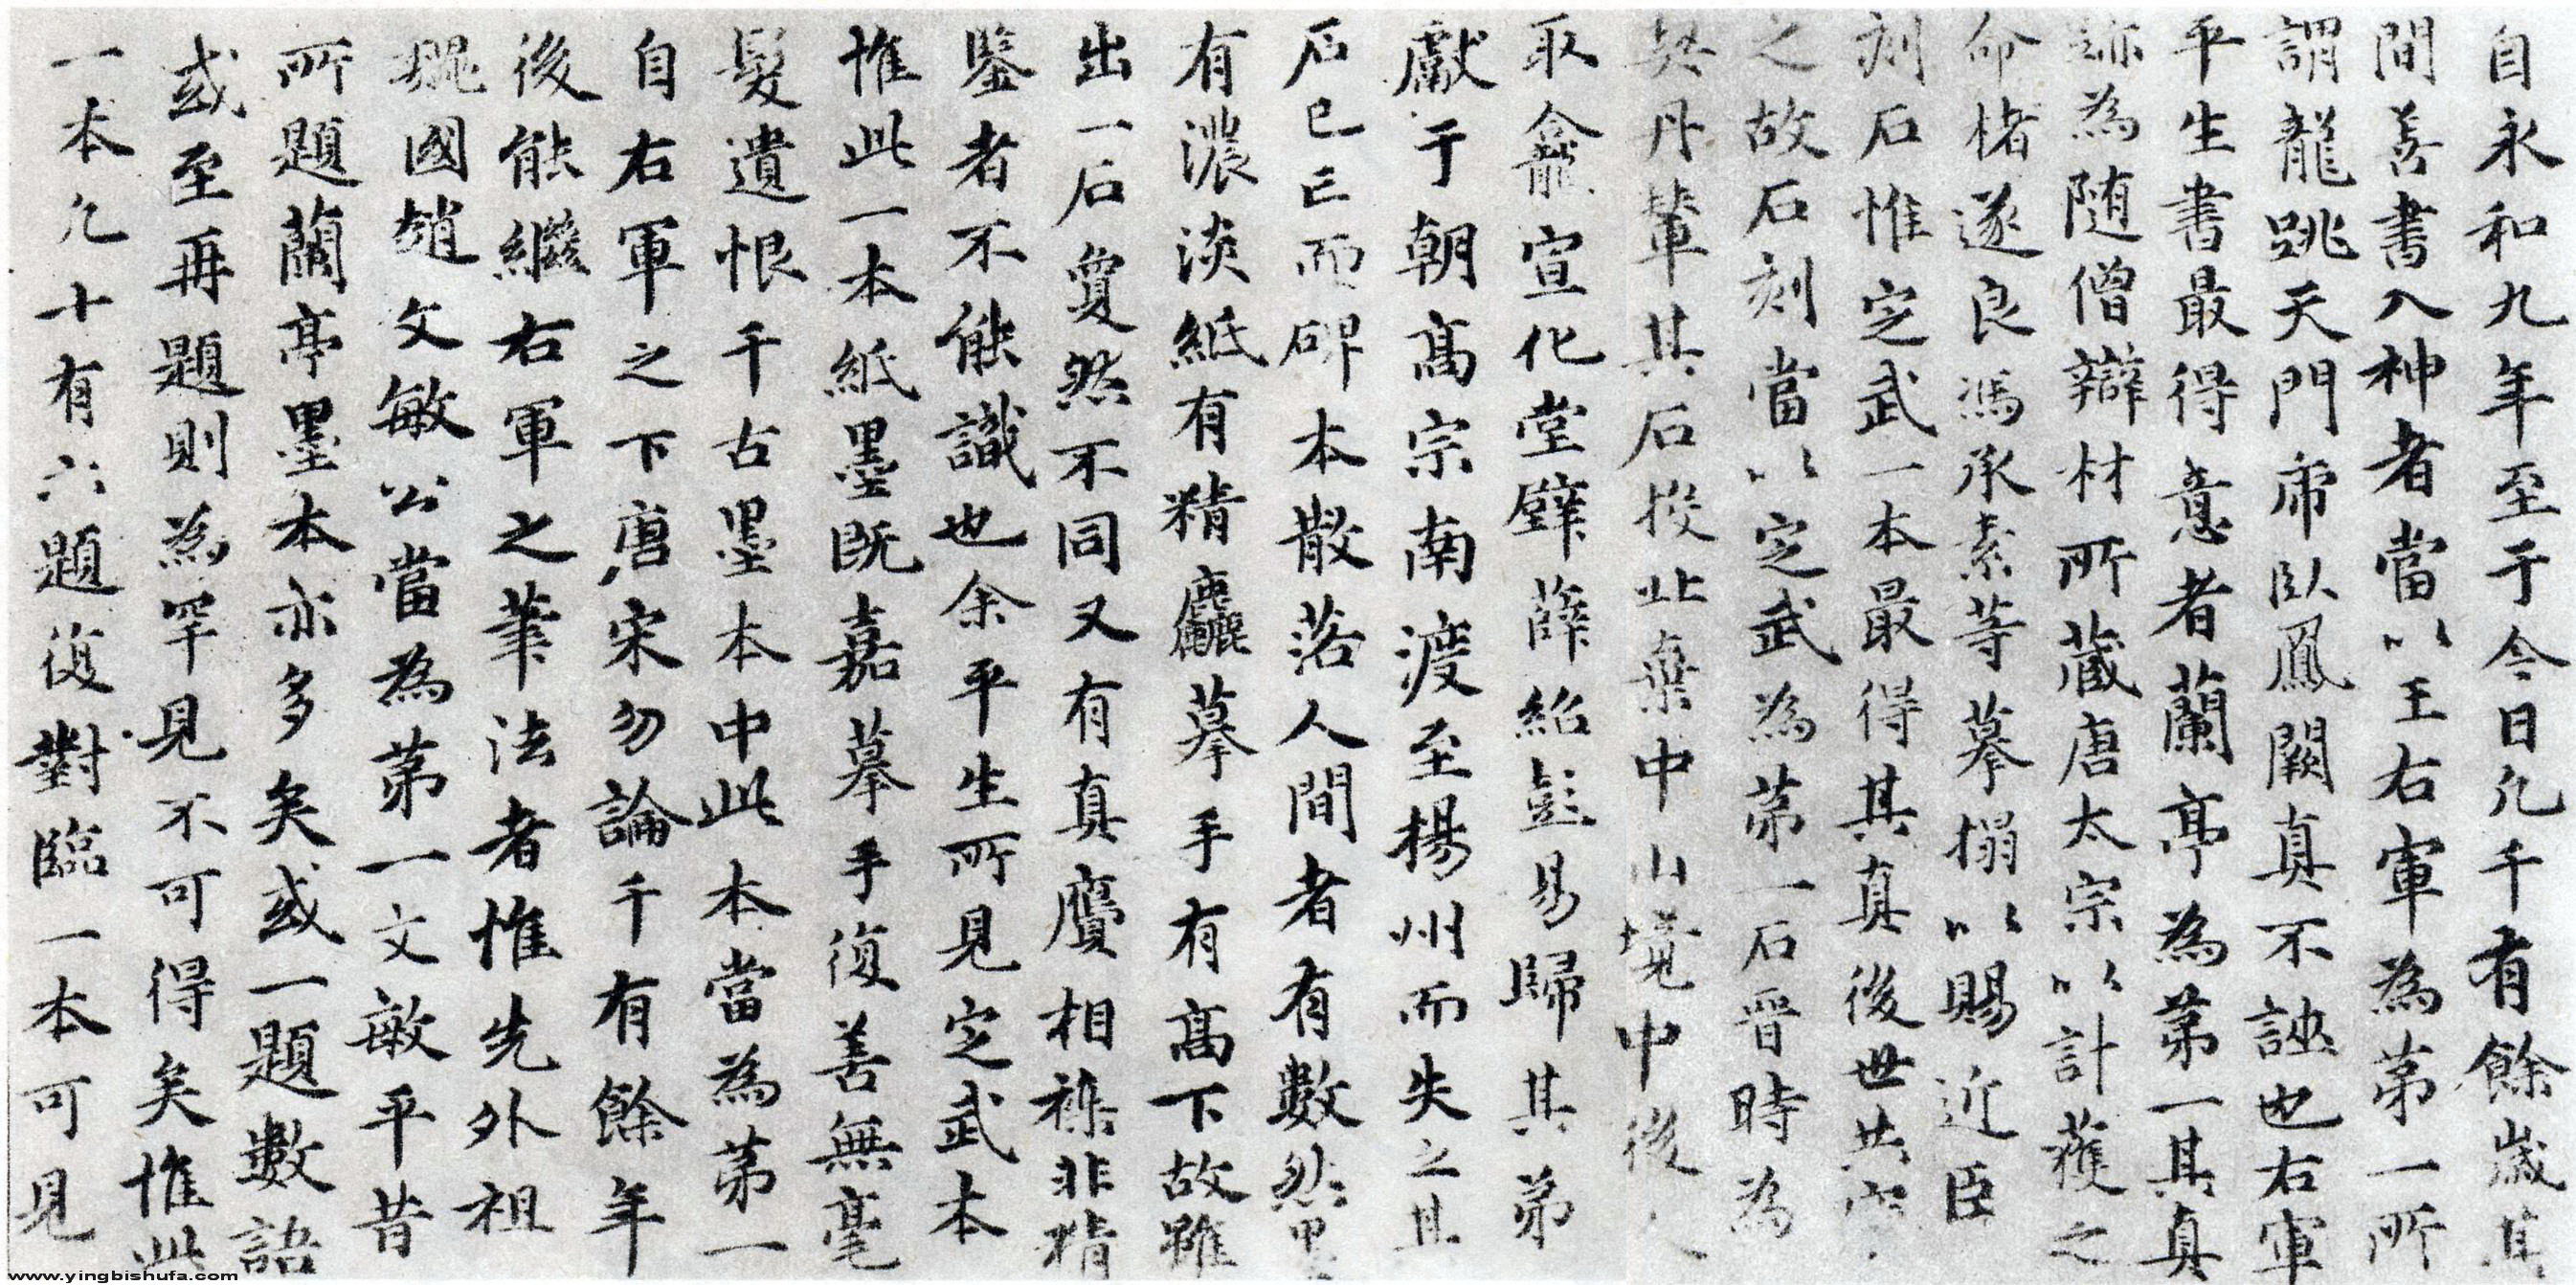 自永和九年至于今日凢千有餘歲其
間善書入神者當以王右軍為第一所
謂龍跳天門帍臥鳳闕真不誣也右軍
平生書最得意者蘭亭為第一其真
跡為隨僧辯材所藏唐太宗以計獲之
命楮遂良馮承素等摹搨以賜近臣
刻石惟定武一本最得其真後世共
之故石刻當以定武為第一石晉時為
契丹輦其石投北棄中山境中後人
取龕宣化堂壁薛紹彭易歸其弟
獻于朝高宗南渡至楊州而失之其
石已亡而碑本散落人間者有數然
有濃淡紙有精麤摹手有高下故雖
出一石夐然不同又有真贋相襍非精
鑒者不能識也余平生所見定武本
惟此一本紙墨既嘉摹手復善無毫
髮遺恨千古墨本中此本當為第一
自右軍之下唐宋勿論千有餘年
後能繼右軍之筆法者惟先外祖
魏國趙文敏公當為第一文敏平昔
所題蘭亭墨本亦多矣或一題數語
或至再題則為罕見不可得矣惟此
一本凢十有六題復對臨一本可見
www.yingbishufa.com